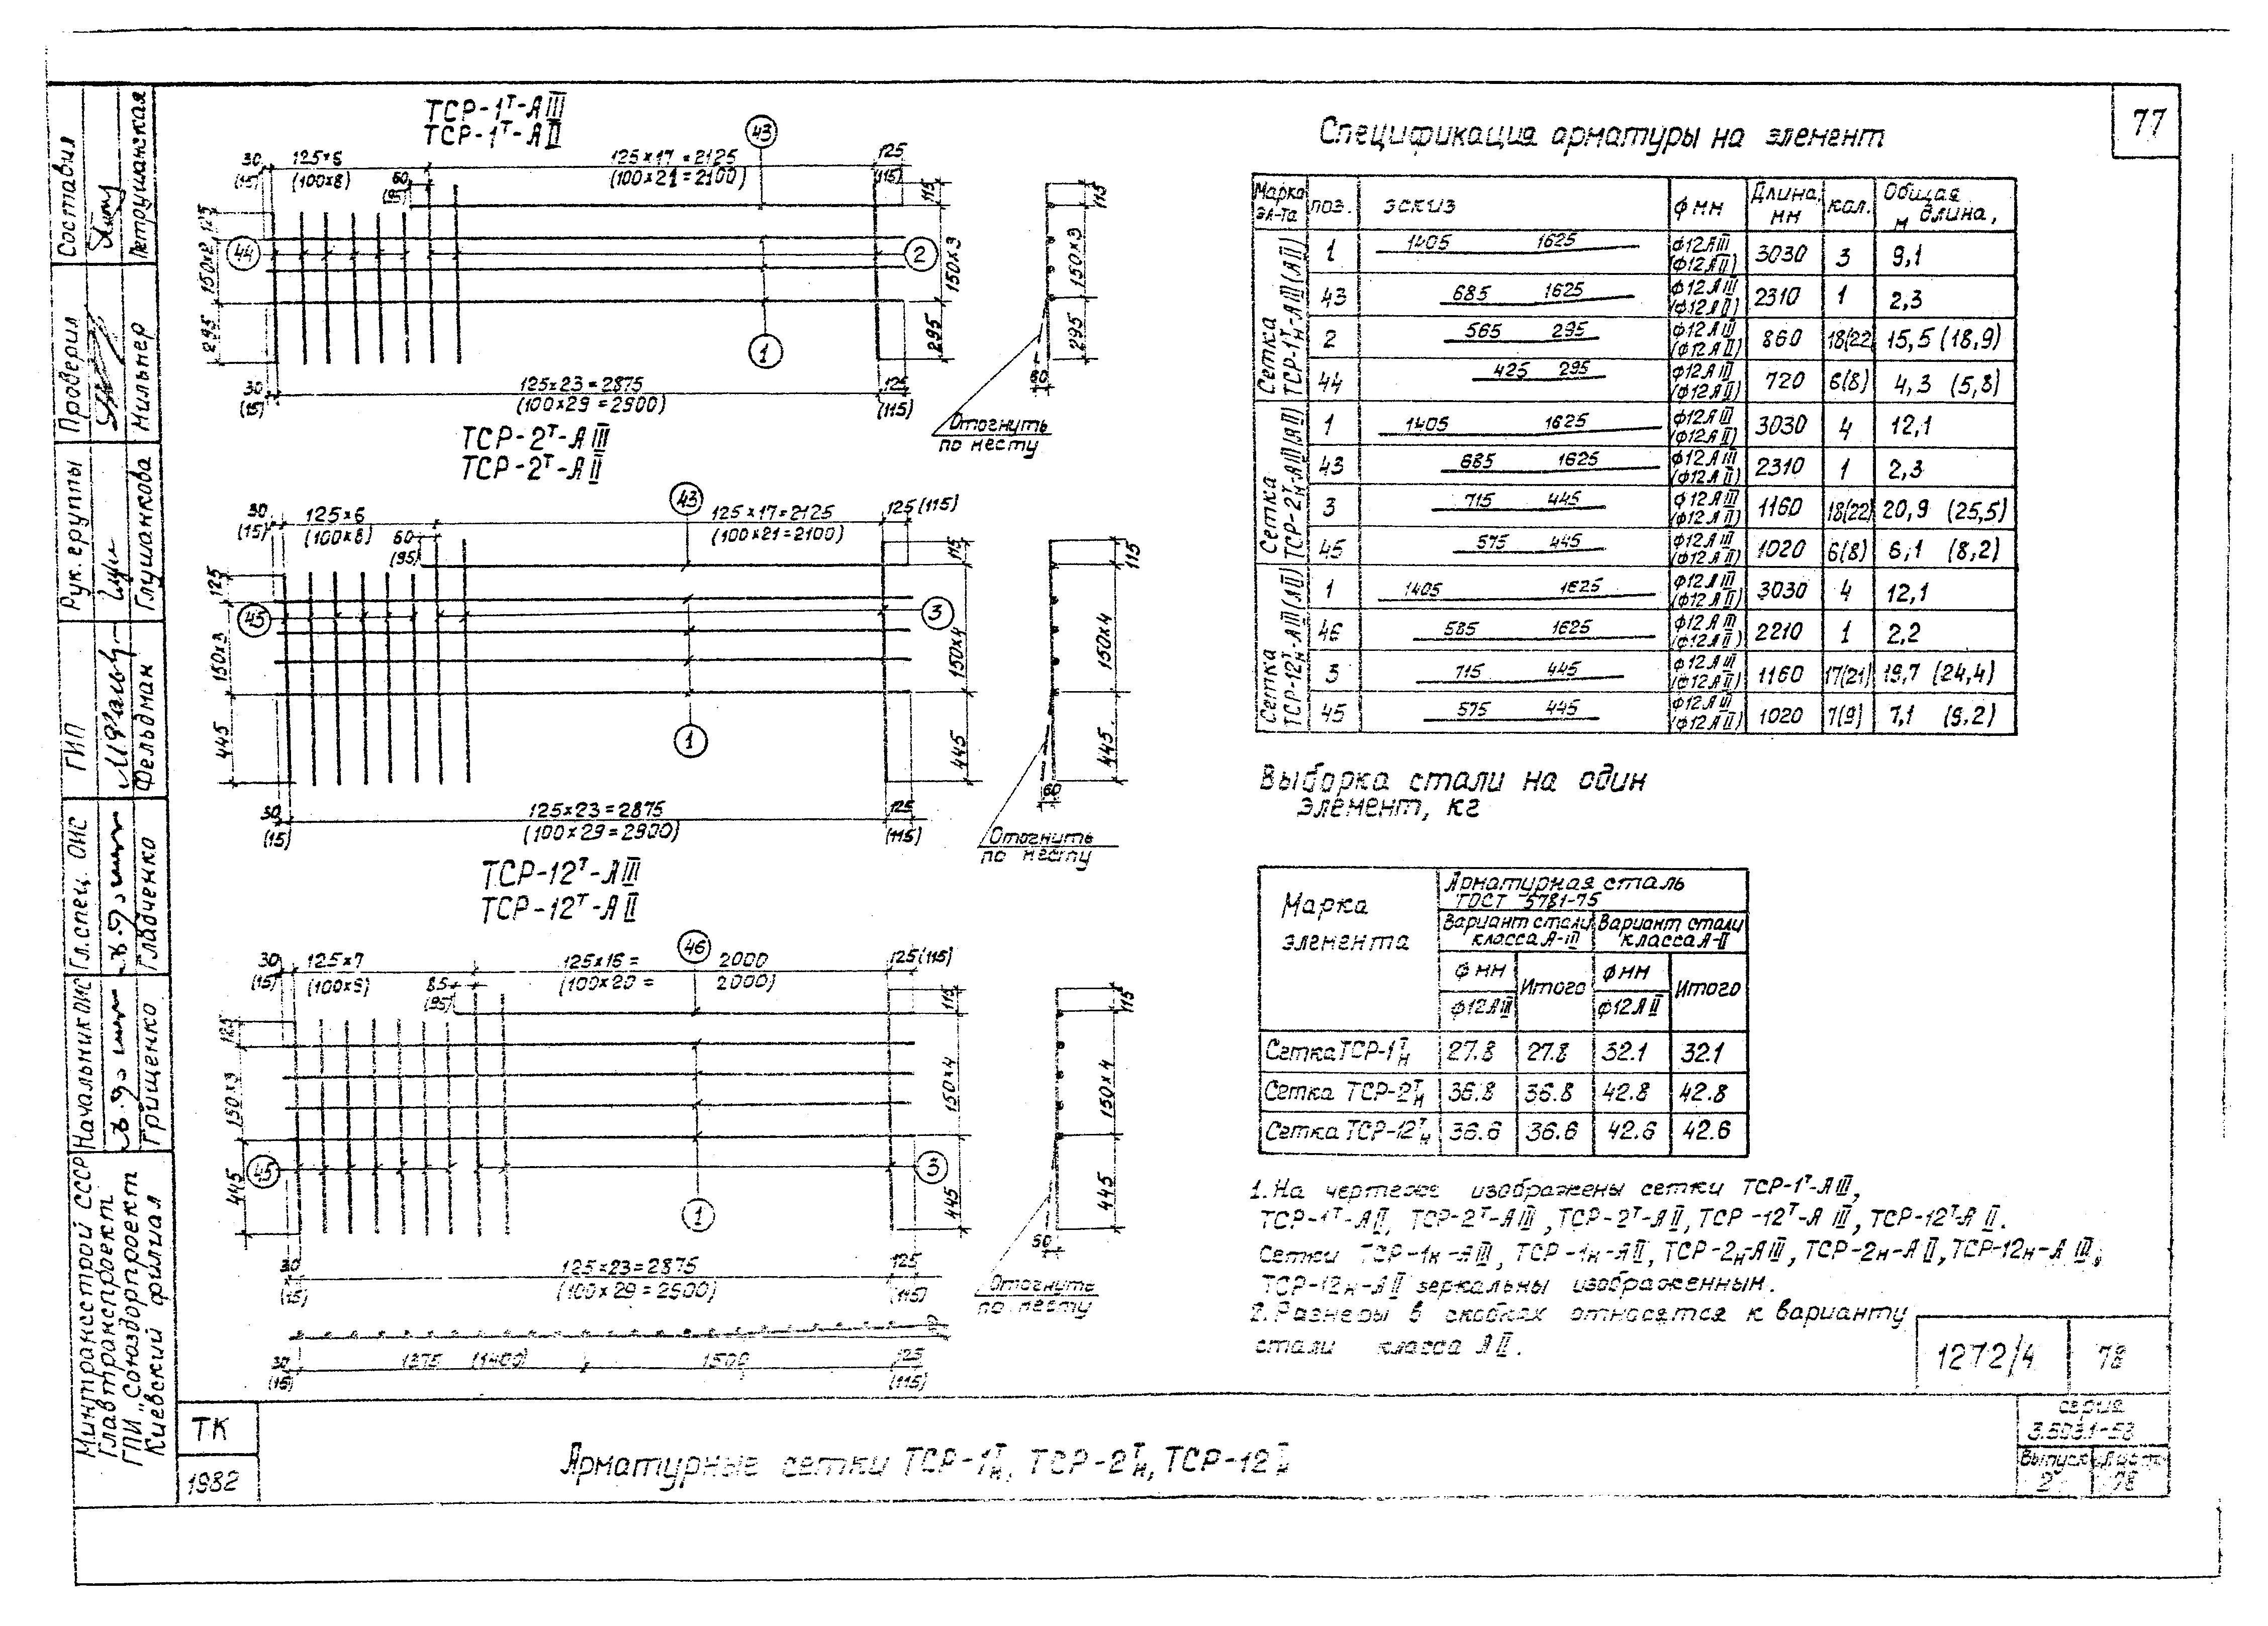 77
Составил
Петрушанская
Проверил
Мильнер
Рук. группы
Глушанкова
ГИП
Фельдман
Гл. спец. ОИС
Гладченко
Начальник ОИС
Грищенко
Минтрансстрой СССР
Главтранспроект
ГПИ „Союздорпроект
Киевский филиал
ТСР-1Т-АIII
ТСР-1Т-АII
30 125×6 125×17=2125 125
(15) (100×8) 60 (100×21=2100) (115)
(95)
43
115 115
150×2 125
44 2
150×3 150×3
295 295 295
1
60
30 125×23=2875 125
(15) (100×29=2900) (115)
Отогнуть
по месту
ТСР-2Т-АIII
ТСР-2Т-АII
30 125×6 43 125×17=2125 125(115)
(15) (100×8) 60 (100×21=2100)
(95)
115 115
125
45 3
150×3 150×4 150×4
445 445 445
1
60
30 125×23=2875 125
(15) (100×29=2900) (115)
Отогнуть
по месту
ТСР-12Т-АIII
ТСР-12Т-АII
30 125×7 125×16= 46 2000 125(115)
(15) (100×9) 85 (100×20= 2000)
(95)
115 115
125
150×3 150×4 150×4
45 3
445 445 445
1
60
30 125×23=2875 125
(15) (100×29=2900) (115)
Отогнуть
по месту
30 1375 (1400) 1500 125
(15) (115)
Спецификация арматуры на элемент
Марка эл-та поз. эскиз ф мм Длина, мм кол. Общая длина, м
Сетка ТСР-1Тн-АIII(АII)
1 1405 1625 ф12АIII (ф12АII) 3030 3 9,1
43 685 1625 ф12АIII (ф12АII) 2310 1 2,3
2 565 295 ф12АIII (ф12АII) 860 18(22) 15,5 (18,9)
44 425 295 ф12АIII (ф12АII) 720 6(8) 4,3 (5,8)
Сетка ТСР-2Тн-АIII(АII)
1 1405 1625 ф12АIII (ф12АII) 3030 4 12,1
43 685 1625 ф12АIII (ф12АII) 2310 1 2,3
3 715 445 ф12АIII (ф12АII) 1160 18(22) 20,9 (25,5)
45 575 445 ф12АIII (ф12АII) 1020 6(8) 6,1 (8,2)
Сетка ТСР-12Тн-АIII(АII)
1 1405 1625 ф12АIII (ф12АII) 3030 4 12,1
46 585 1625 ф12АIII (ф12АII) 2210 1 2,2
3 715 445 ф12АIII (ф12АII) 1160 17(21) 19,7 (24,4)
45 575 445 ф12АIII (ф12АII) 1020 7(9) 7,1 (9,2)
Выборка стали на один
элемент, кг
Марка элемента
Арматурная сталь
ГОСТ 5781-75
Вариант стали класса А-III Вариант стали класса А-II
ф мм Итого ф мм Итого
ф12АIII ф12АII
Сетка ТСР-1Тн 27.8 27.8 32.1 32.1
Сетка ТСР-2Тн 36.8 36.8 42.8 42.8
Сетка ТСР-12Тн 36.6 36.6 42.6 42.6
1. На чертеже изображены сетки ТСР-1Т-АIII,
ТСР-1Т-АII, ТСР-2Т-АIII, ТСР-2Т-АII, ТСР-12Т-АIII, ТСР-12Т-АII.
Сетки ТСР-1н-АIII, ТСР-1н-АII, ТСР-2н-АIII, ТСР-2н-АII, ТСР-12н-АIII,
ТСР-12н-АII зеркальны изображенным.
2. Размеры в скобках относятся к варианту
стали класса АII.
1272/4 78
ТК
1982
Арматурные сетки ТСР-1Тн, ТСР-2Тн, ТСР-12Тн
серия
3.503.1-53
Выпуск Лист
2 78